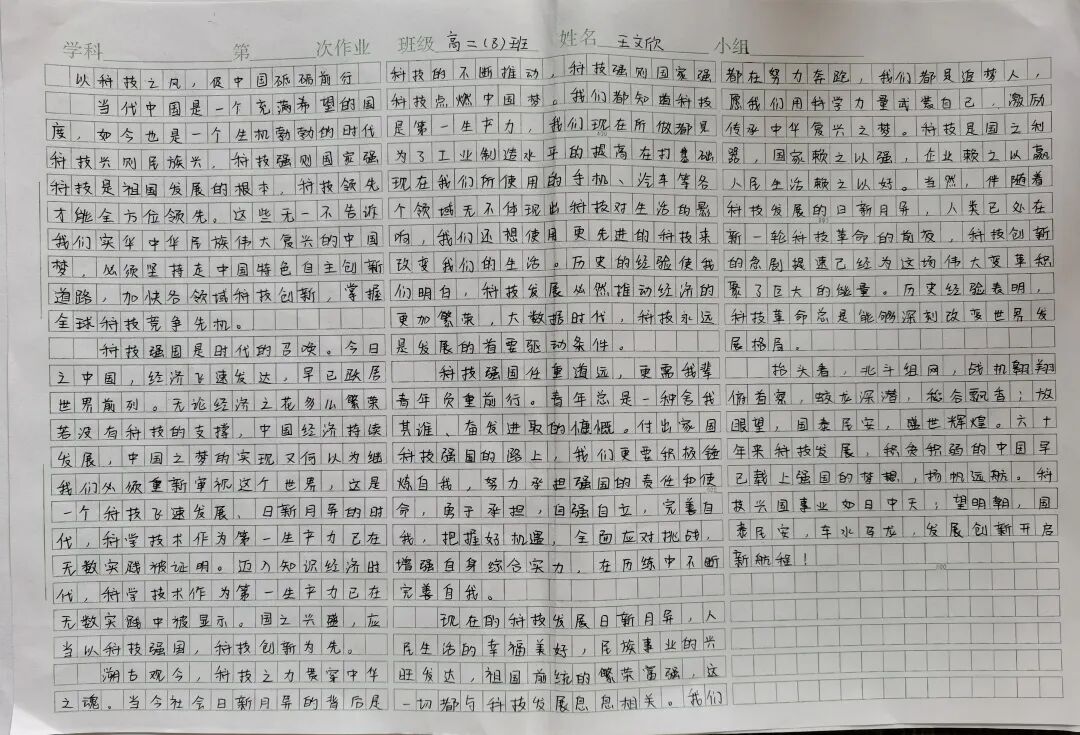 学科 第 次作业 班级 高二(8)班 姓名 王文欣 小组
以科技之风,促中国砥砺前行
当代中国是一个充满希望的国
度,如今也是一个生机勃勃的时代
科技兴则民族兴,科技强则国家强
科技是祖国发展的根本,科技领先
才能全方位领先。这些无一不告诉
我们实华中华民族伟大复兴的中国
梦,必须坚持走中国特色自主创新
道路,加快各领域科技创新,掌握
全球科技竞争先机。
科技强国是时代的召唤。今日
之中国,经济飞速发达,早已跃居
世界前列。无论经济之花多么繁荣
若没有科技的支撑,中国经济持续
发展,中国之梦的实现又何以为继
我们必须重新审视这个世界,这是
一个科技飞速发展、日新月异的时
代,科学技术作为第一生产力已在
无数实践被证明。迈入知识经济时
代,科学技术作为第一生产力已在
无数实践中被显示。国之兴盛,应
当以科技强国,科技创新为先。
溯古观今,科技之力贯穿中华
之魂。当今社会日新月异的背后是
科技的不断推动,科技强则国家强
科技点燃中国梦。我们都知道科技
是第一生产力,我们现在所做都是
为了工业制造水平的提高在打基础
现在我们所使用的手机、汽车等各
个领域无不体现出科技对生活的影
响,我们还想使用更先进的科技来
改变我们的生活。历史的经验使我
们明白,科技发展必然推动经济的
更加繁荣,大数据时代,科技永远
是发展的首要驱动条件。
科技强国任重道远,更需我辈
青年负重前行。青年总是一种舍我
其谁、奋发进取的慷慨。付出家国
科技强国的路上,我们更要积极锤
炼自我,努力承担强国的责任和使
命,勇于承担,自强自立,完善自
我,把握好机遇,全面应对挑战,
增强自身综合实力,在历练中不断
完善自我。
现在的科技发展日新月异,人
民生活的幸福美好,民族事业的兴
旺发达,祖国前统的繁荣富强,这
一切都与科技发展息息相关。我们
都在努力奔跑,我们都是追梦人,
愿我们用科学力量武装自己,激励
传承中华复兴之梦。科技是国之利
器,国家赖之以强,企业赖之以赢
人民生活赖之以好。当然,伴随着
科技发展的日新月异,人类已处在
新一轮科技革命的前夜,科技创新
的急剧提速已经为这场伟大变革积
聚了巨大的能量。历史经验表明,
科技革命总是能够深刻改变世界发
展格局。
抬头看,北斗组网,战机翱翔
俯首察,蛟龙深潜,稻谷飘香;放
眼望,国泰民安,盛世辉煌。六十
年来科技发展,积贫积弱的中国早
已载上强国的梦想,扬帆远航。科
技兴国事业如日中天;望明朝,国
泰民安,车水马龙,发展创新开启
新航程!